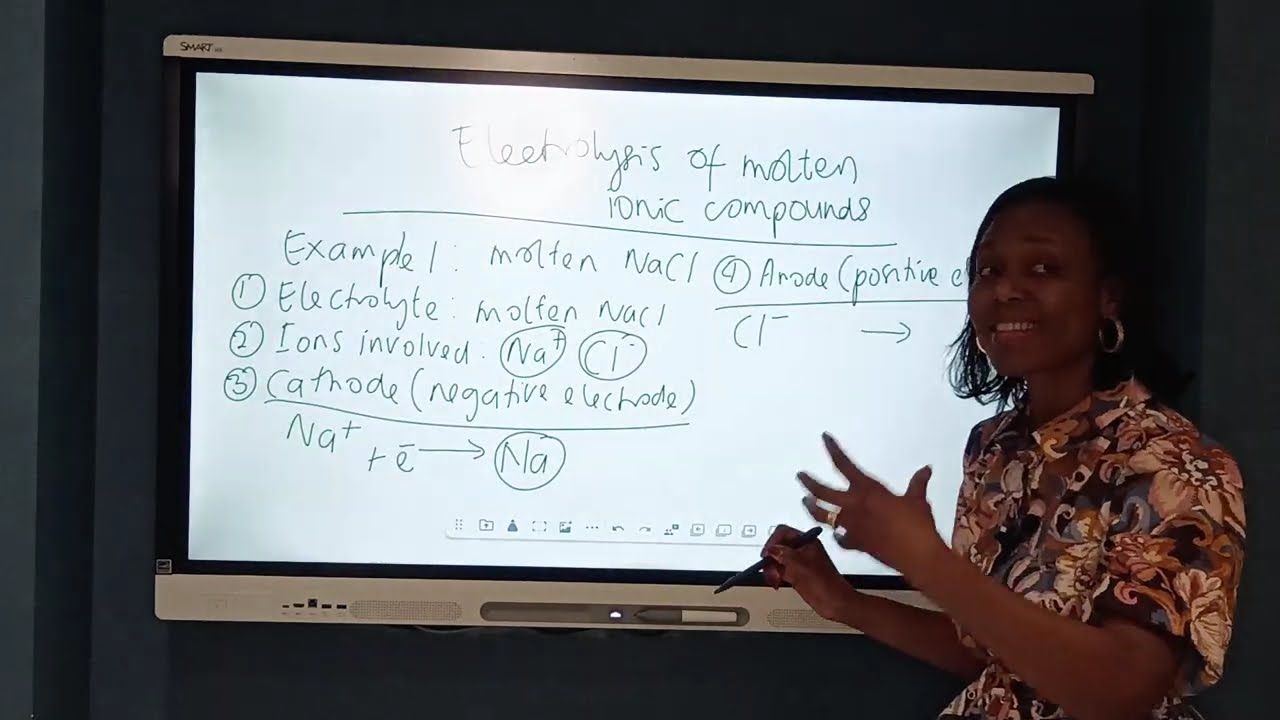 SMART
Electrolysis of molten
ionic compounds
Example 1: molten NaCl
① Electrolyte: molten NaCl
② Ions involved: Na⁺ Cl⁻
③ Cathode (negative electrode)
Na⁺ + ē → Na
④ Anode (positive e
Cl⁻ →